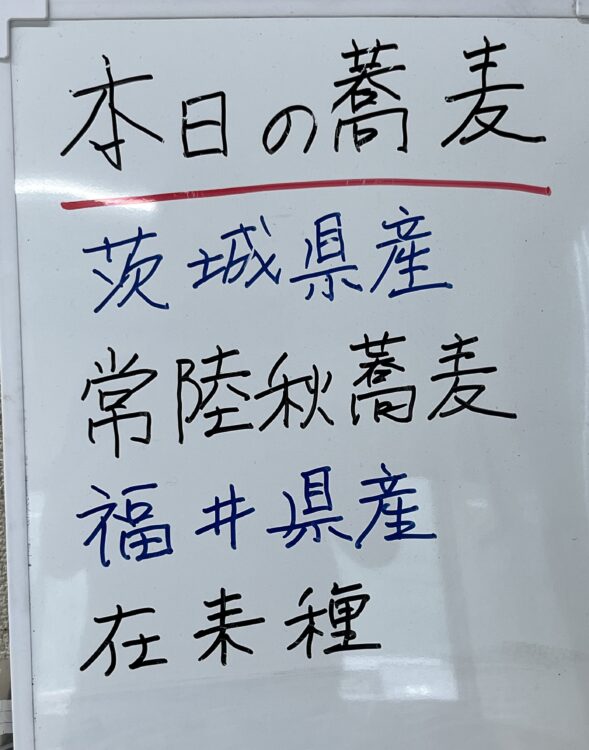 本日の蕎麦
茨城県産
常陸秋蕎麦
福井県産
在来種